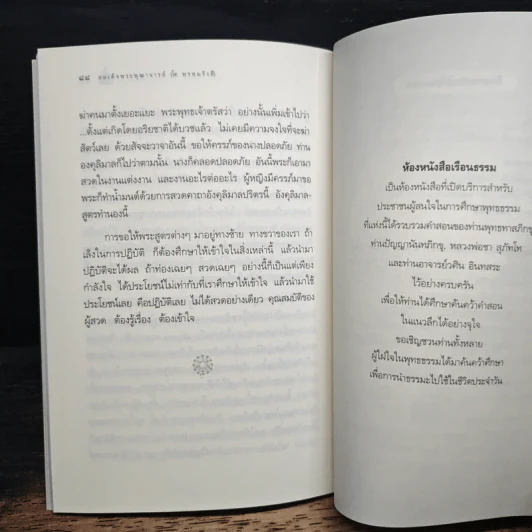 ๘๘ สมเด็จพระพุฒาจารย์
ฆ่าคนมาตั้งเยอะแยะ พระพุทธเจ้าตรัสว่า อย่างนั้นเพิ่มเข้าไปว่า
...ตั้งแต่เกิดโดยอริยชาติได้บวชแล้ว ไม่เคยมีความจงใจที่จะฆ่า
สัตว์เลย ด้วยสัจจะวาจาอันนี้ ขอให้ครรภ์ของนางปลอดภัย ท่าน
องคุลิมาลก็ไปว่าตามนั้น นางก็คลอดปลอดภัย อันนี้พระก็เอามา
สวดในงานแต่งงาน และงานอะไรต่ออะไร ผู้หญิงมีครรภ์มาขอ
พระก็ทำน้ำมนต์ด้วยการสวดคาถาอังคุลิมาลปริตรนี้ อังคุลิมาล-
สูตรทำนองนี้
การขอให้พระสูตรต่างๆ มาอยู่ทางซ้าย ทางขวาของเรา ถ้า
เล็งในการปฏิบัติ ก็ต้องศึกษาให้เข้าใจในสิ่งเหล่านี้ แล้วนำมา
ปฏิบัติจะได้ผล ถ้าท่องเฉยๆ สวดเฉยๆ อย่างนี้ก็เป็นแต่เพียง
กำลังใจ ได้ประโยชน์ไม่เท่ากับที่เราศึกษาให้เข้าใจ แล้วนำมาใช้
ประโยชน์เลย คือปฏิบัติเลย ไม่ได้สวดอย่างเดียว คุณสมบัติของ
ผู้สวด ต้องรู้เรื่อง ต้องเข้าใจ
ห้องหนังสือเรือนธรรม
เป็นห้องหนังสือที่เปิดบริการสำหรับ
ประชาชนผู้สนใจในการศึกษาพุทธธรรม
ที่แห่งนี้ได้รวบรวมคำสอนของท่านพุทธทาสภิกขุ,
ท่านปัญญานันทภิกขุ, หลวงพ่อชา สุภัทโท
และท่านอาจารย์วศิน อินทสระ
ไว้อย่างครบครัน
เพื่อให้ท่านได้ศึกษาค้นคว้าคำสอน
ในแนวลึกได้อย่างจุใจ
ขอเชิญชวนท่านทั้งหลาย
ผู้ใฝ่ใจในพุทธธรรมได้มาค้นคว้าศึกษา
เพื่อการนำธรรมะไปใช้ในชีวิตประจำวัน